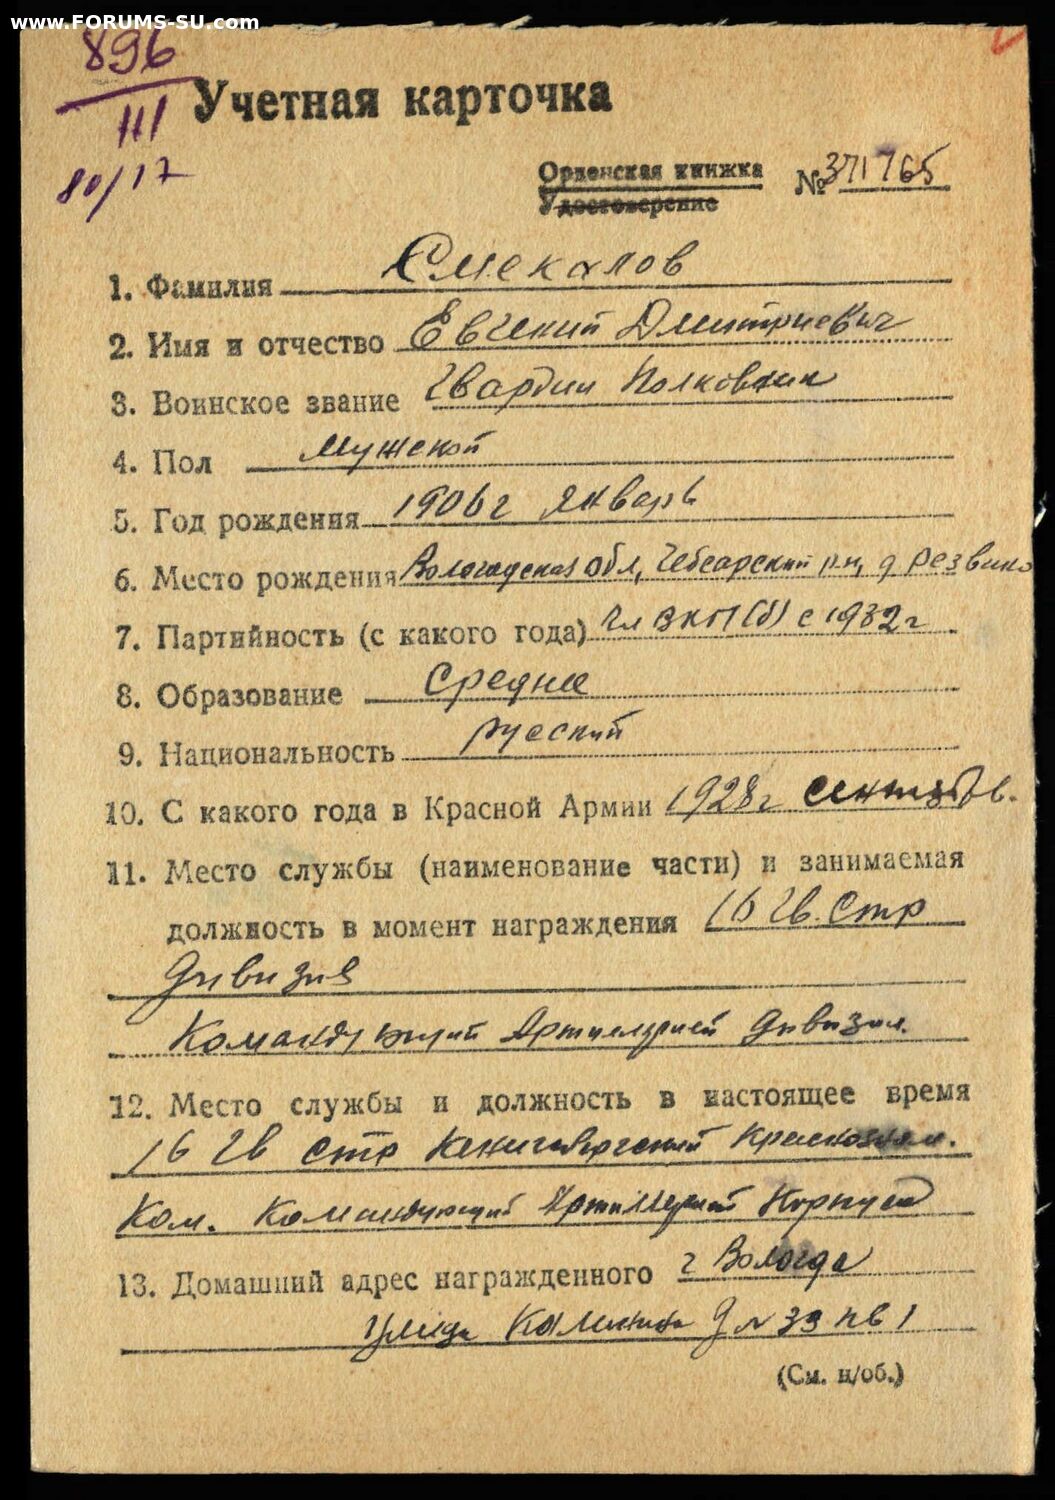 www.FORUMS-SU.com
896
III
80/17
Учетная карточка
Орденская книжка
Удостоверение
№ 371765
1. Фамилия Смекалов
2. Имя и отчество Евгений Дмитриевич
3. Воинское звание Гвардии Полковник
4. Пол Мужской
5. Год рождения 1906г Январь
6. Место рождения Вологодская обл, Чебсарский р.н, д Резвино
7. Партийность (с какого года) Чл ВКП(б) с 1932г
8. Образование Среднее
9. Национальность русский
10. С какого года в Красной Армии 1928г сентябрь.
11. Место службы (наименование части) и занимаемая
должность в момент награждения 16 Гв. Стр
Дивизия
Командующий Артиллерией Дивизии.
12. Место службы и должность в настоящее время
16 Гв Стр Кенигсбергский Краснознам.
Командующий Артиллерией Корпуса
13. Домашний адрес награжденного г Вологда
улица Калинина д № 39 кв 1
(См. н/об.)